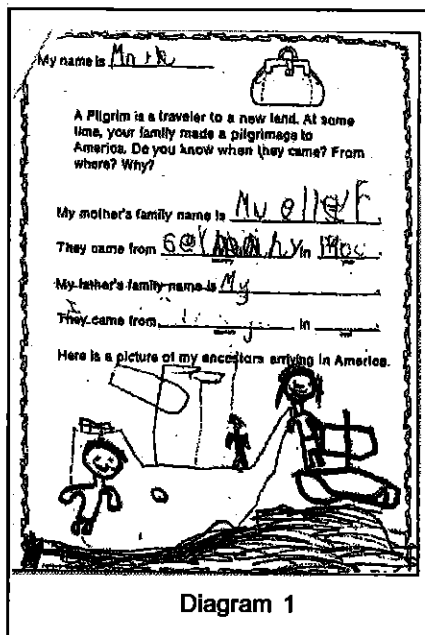 My name is Mark
A Pilgrim is a traveler to a new land. At some
time, your family made a pilgrimage to
America. Do you know when they came? From
where? Why?
My mother's family name is
They came from in
My father's family name is My
They came from in
Here is a picture of my ancestors arriving in America.
Diagram 1